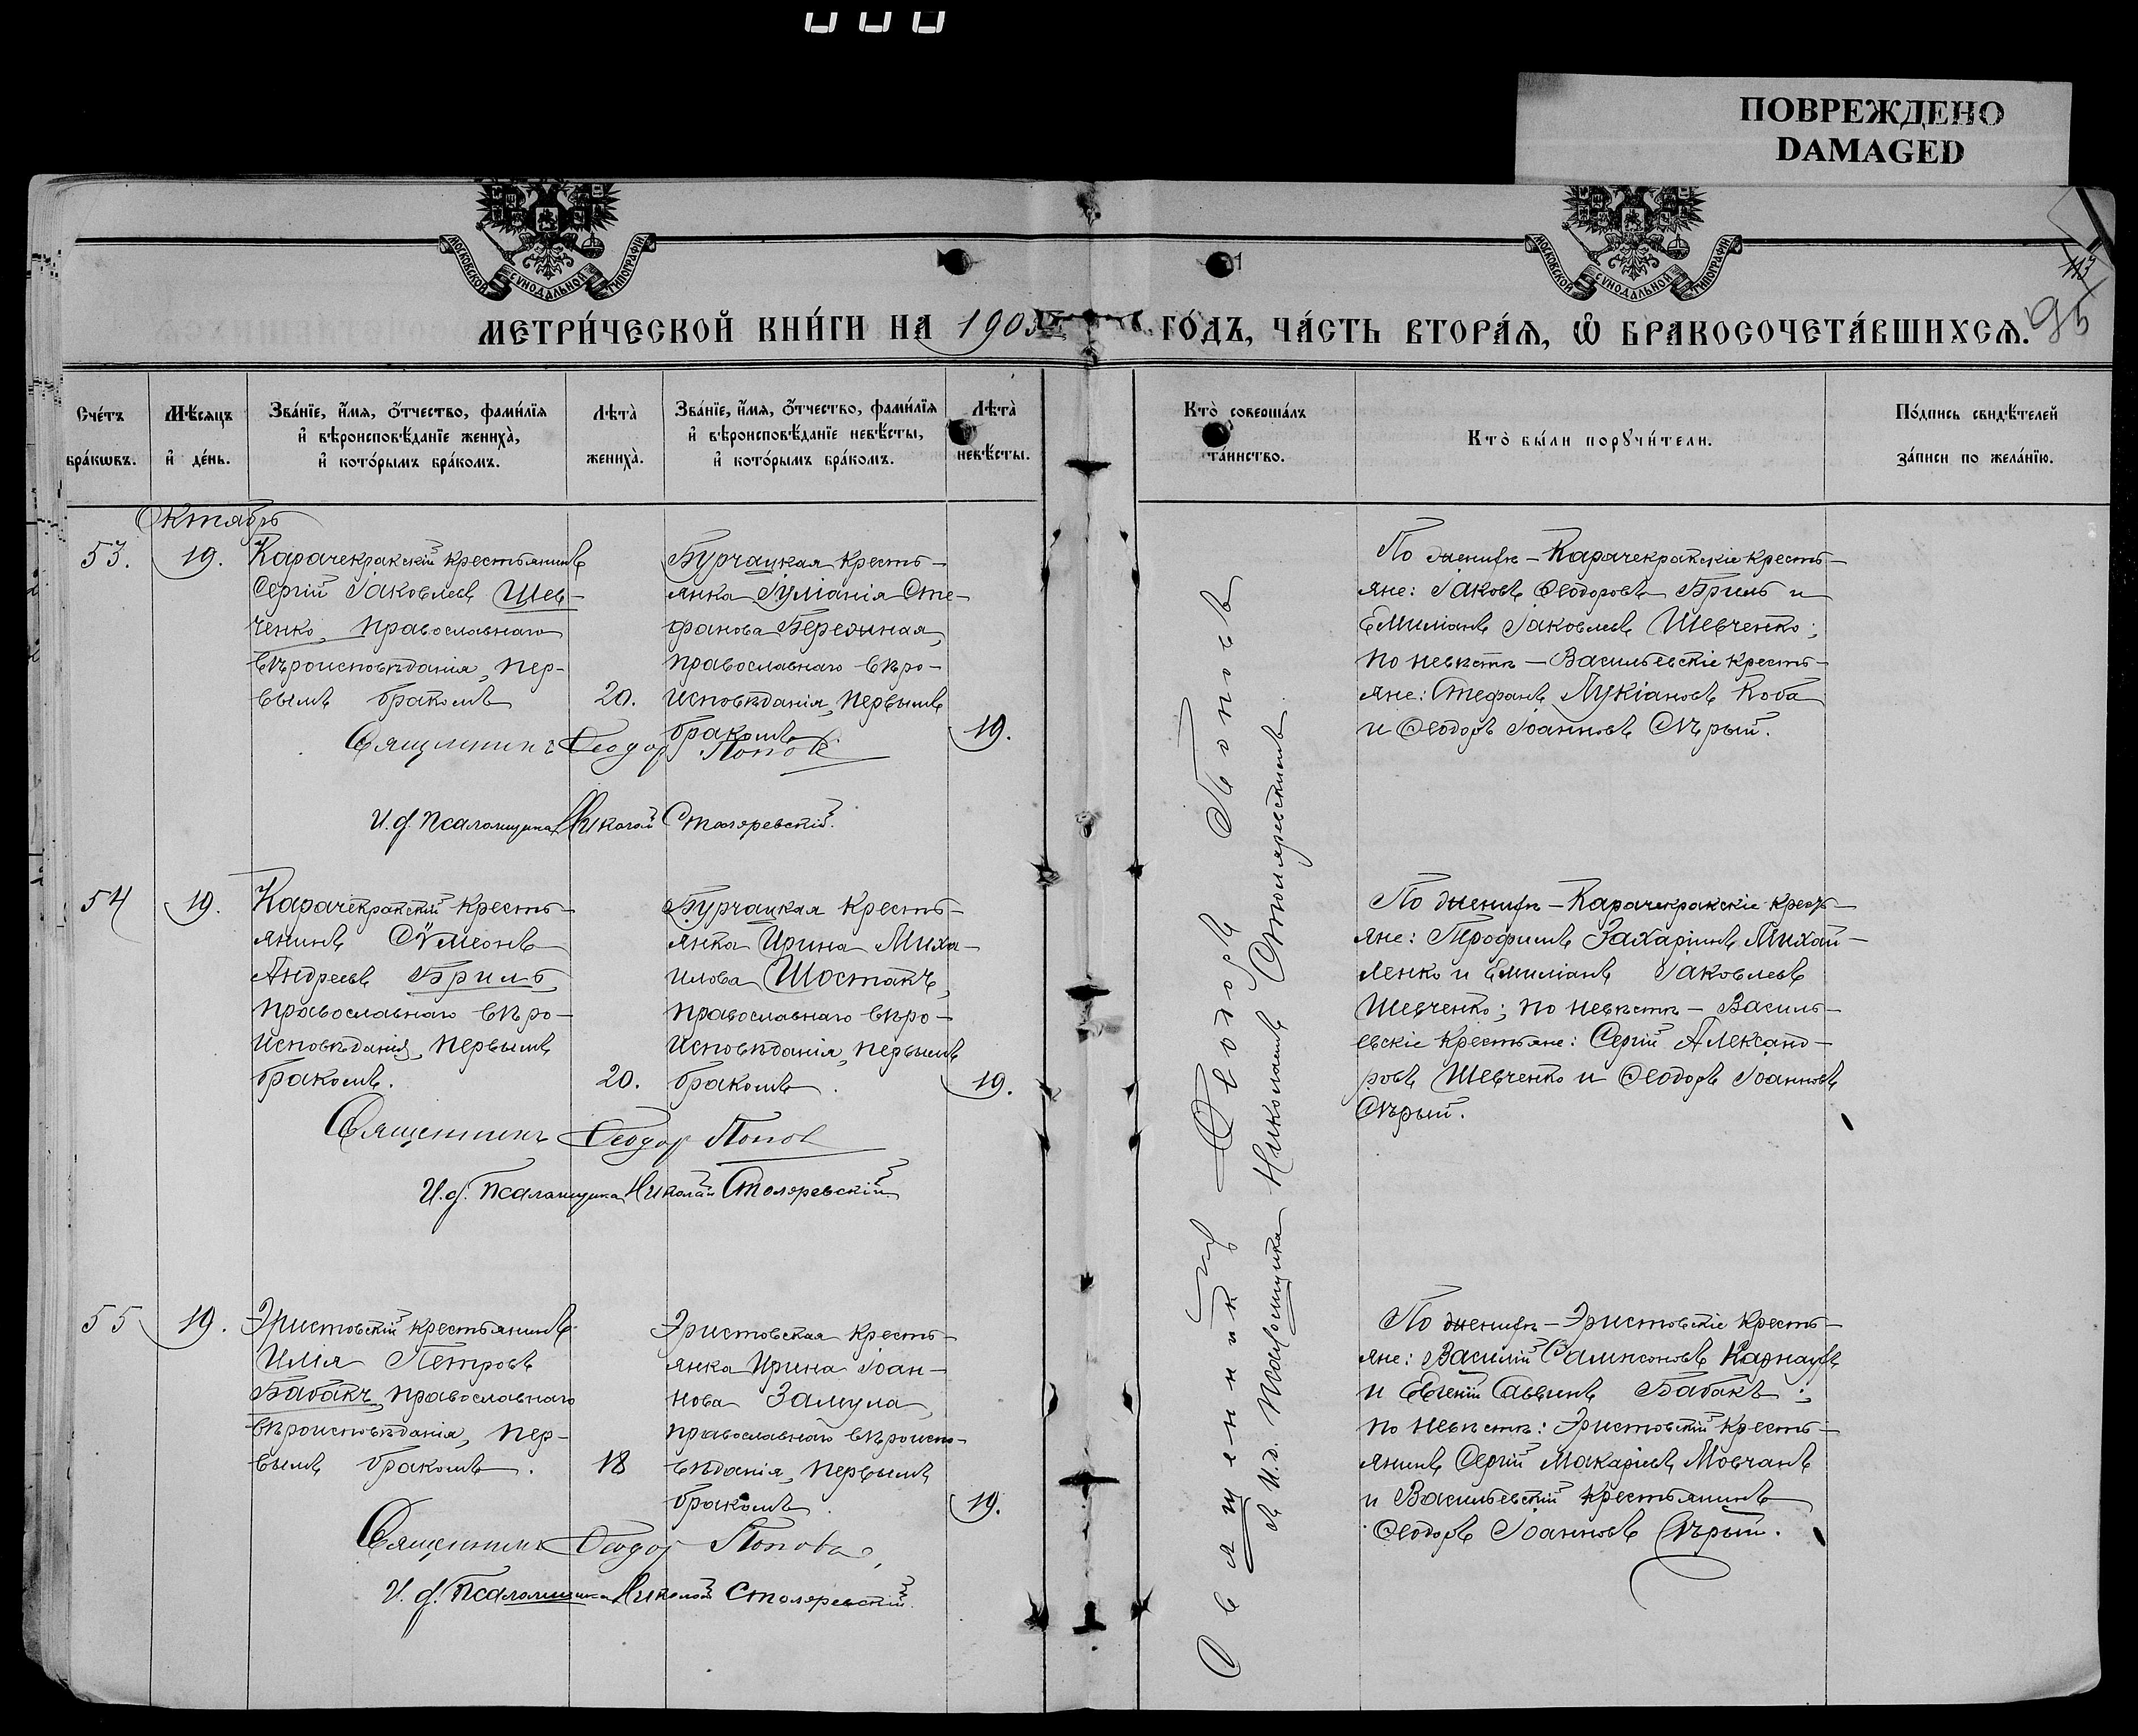 ПОВРЕЖДЕНО
DAMAGED
МОСКОВСКОЙ СѴНОДАЛЬНОЙ ТИПОГРАФІИ
МОСКОВСКОЙ СѴНОДАЛЬНОЙ ТИПОГРАФІИ
113
95
МЕТРИ́ЧЕСКОЙ КНИ́ГИ НА 1903
ГО́ДЪ, ЧА́СТЬ ВТОРА́Ѧ, Ѽ БРАКОСОЧЕТА́ВШИХСѦ.
Сче́тъ
бра́кѡвъ.
Мѣ́сѧцъ
и҆ де́нь.
Зва́нїе, и҆́мѧ, ѻ҆́тчество, фами́лїѧ
и҆ вѣроисповѣ́данїе жениха̀,
и҆ кото́рымъ бра́комъ.
Лѣта̀
жениха̀.
Зва́нїе, и҆́мѧ, ѻ҆́тчество, фами́лїѧ
и҆ вѣроисповѣ́данїе невѣ́сты,
и҆ кото́рымъ бра́комъ.
Лѣта̀
невѣ́сты.
Кто̀ соверша́лъ
та́инство.
Кто̀ бы́ли порꙋчи́тели.
По́дпись свидѣ́телей
за́писи по жела́нїю.
Октябрь
53.
19.
Карачекракскій крестьянинъ
Сергій Іаковлевъ Шев-
ченко, православнаго
вѣроисповѣданія, пер-
вымъ бракомъ
20.
Бурчацкая кресть-
янка Іуліанія Сте-
фанова Бережная,
православнаго вѣро-
исповѣданія, первымъ
бракомъ.
19.
По женихѣ – Карачекракскіе кресть-
яне: Іаковъ Ѳеодоровъ Бриль и
Емиліанъ Іаковлевъ Шевченко;
по невѣстѣ – Васильевскіе кресть-
яне: Стефанъ Лукіановъ Коба
и Ѳеодоръ Іоанновъ Сѣрый.
Священникъ Ѳеодоръ Поповъ
И. д. псаломщика Николай Столяревскій.
54
19.
Карачекракскій кресть-
янинъ Сѵмеонъ
Андреевъ Бриль,
православнаго вѣро-
исповѣданія, первымъ
бракомъ.
20.
Бурчацкая кресть-
янка Ирина Миха-
илова Шостакъ,
православнаго вѣро-
исповѣданія, первымъ
бракомъ.
19.
По женихѣ – Карачекракскіе кресть-
яне: Трофимъ Захаріинъ Михай-
ленко и Емиліанъ Іаковлевъ
Шевченко; по невѣстѣ – Василь-
евскіе крестьяне: Сергій Александ-
ровъ Шевченко и Ѳеодоръ Іоанновъ
Сѣрый.
Священникъ Ѳеодоръ Поповъ
И. д. псаломщика Николай Столяревскій
55
19.
Эристовскій крестьянинъ
Илія Петровъ
Бабакъ, православнаго
вѣроисповѣданія, пер-
вымъ бракомъ.
18
Эристовская кресть-
янка Ирина Іоан-
нова Замула,
православнаго вѣроиспо-
вѣданія, первымъ
бракомъ.
19.
По женихѣ – Эристовскіе кресть-
яне: Василій Сампсоновъ Карнаухъ
и Евгеній Саввинъ Бабакъ;
по невѣстѣ: Эристовскій кресть-
янинъ Сергій Макаріевъ Мовчанъ
и Васильевскій крестьянинъ
Ѳеодоръ Іоанновъ Сѣрый.
Священникъ Ѳеодоръ Поповъ,
И. д. псаломщика Николай Столяревскій.
Священникъ Ѳеодоръ Поповъ
съ И.д. Псаломщика Николаемъ Столяревскимъ.